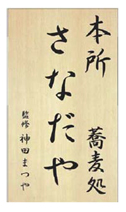 本所　蕎麦処
さなだや
監修　神田まつや